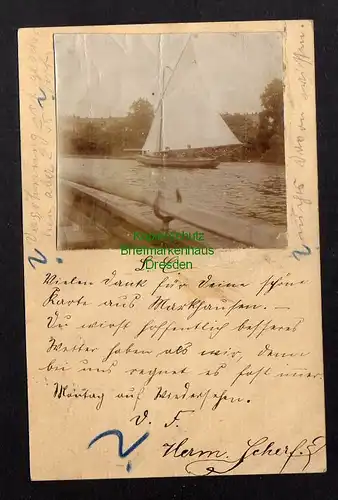 Kopierschutz
Briefmarkenhaus
Dresden
L. H.
Vielen Dank für Deine schöne
Karte aus Markhausen. —
Du wirst hoffentlich besseres
Wetter haben als wir, denn
bei uns regnet es fast immer.
Montag auf Wiedersehen.
D. F.
Herm. Scherf.